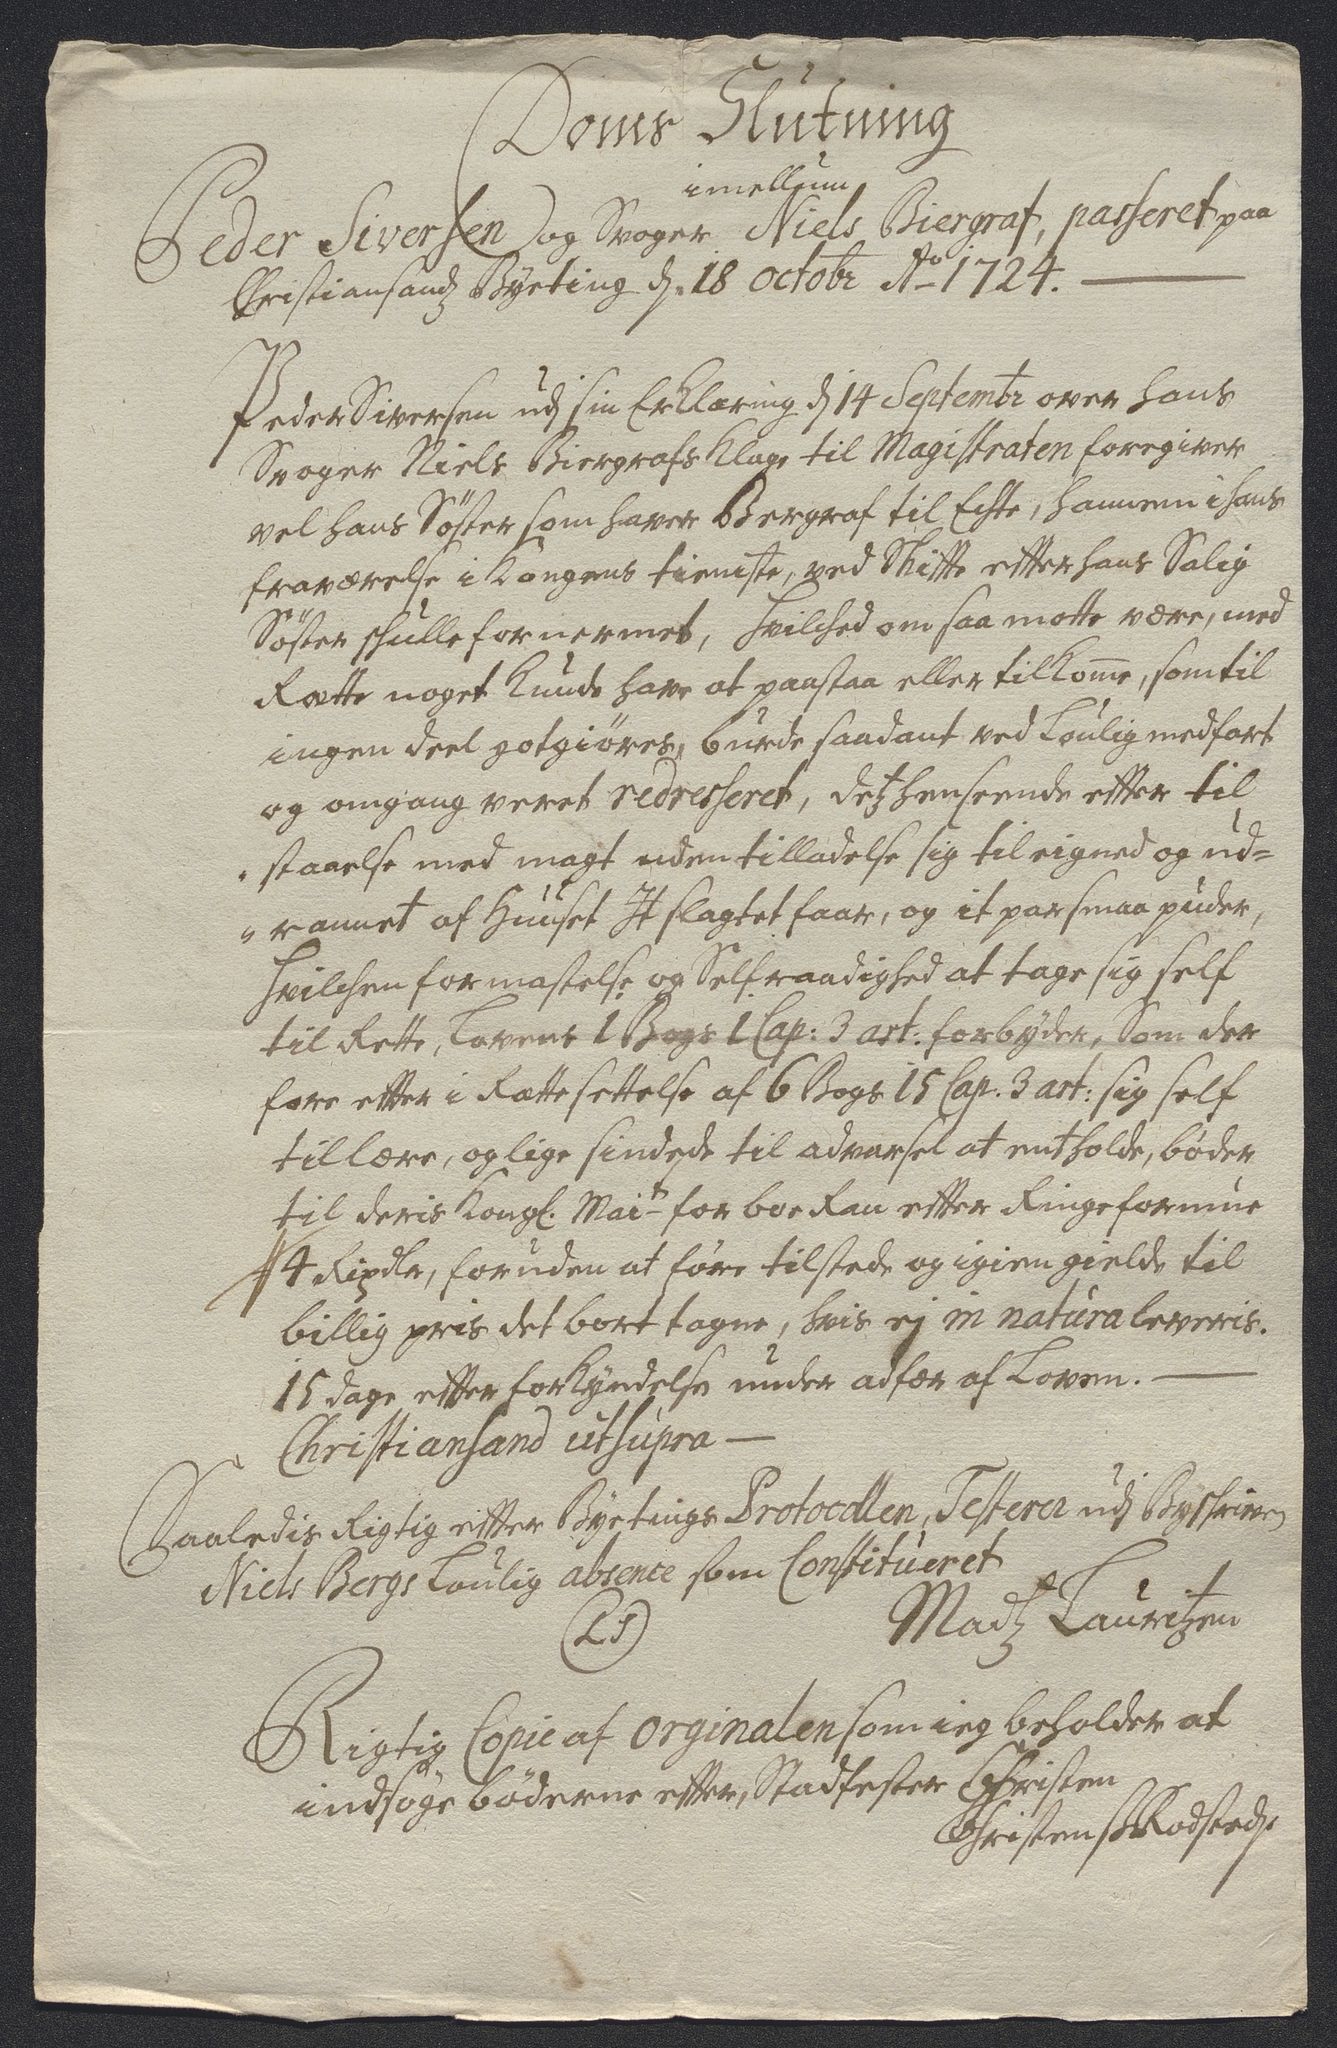 Doms Slutning
imellum
Peder Siversen og Svoger Niels Biergraf, passeret paa
Christiansandz Byeting d. 18 octobr Ao 1724.
Peder Siversen udj sin Erklæring d 14 Septembr over hans
Svoger Niels Biergrafs Klage til Magistraten foregiver
vel hans Söster som haver Bergraf til Echte, hannem i hans
fraværelse i Kongens tieniste, ved Skifte effter hans Salig
Söster skulle fornermet, hvilched om saa motte være, med
Rætte noget kunde have at paastaa eller tilkomme, som til
ingen deel gotgiöres, burde saadant ved Loulig medfart
og omgang veret redresseret, detz henseende effter til
staaelse med magt uden tilladelse sig til eigned og ud=
rannet af Huuset It slagtet faar, og it par smaa puder,
hvilchen formastelse og Selfraadighed at tage sig self
til Rette, Lovens 1 Bogs 1 Cap: 3 art: forbyder, Som der
fore effter i Rættesettelse af 6 Bogs 15 Cap. 3 art: sig self
til lære, og lige sindede til advarsel at entholde, bøder
til deris Kongl. Maits for boe Ran effter Ringe formue
4 Rixdlr, foruden at føre tilstede og igien gielde til
billig pris det bort tagne, hvis ej in natura leveris.
15 dage effter forkyndelse under adfær af Loven.
Christiansand ut supra
Saaledis Rigtig effter Byetings Protocollen, Testerer udj Byskriver
Niels Bergs Loulig absence som Constitueret
(LS) Madtz Lauritzen
Rigtig Copie af orginalen som ieg beholder at
indsøge bøderne effter, Stadfester Christen
Christens Rodsted